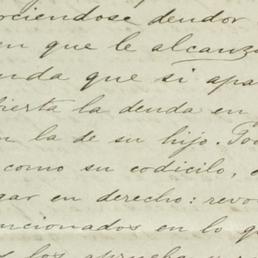 rciendose deudor
en que le alcanz
nda que si apa
bierta la deuda en
n la de su hijo. Poo
como su codicilo, c
gar en derecho: revo
ncionados en lo q